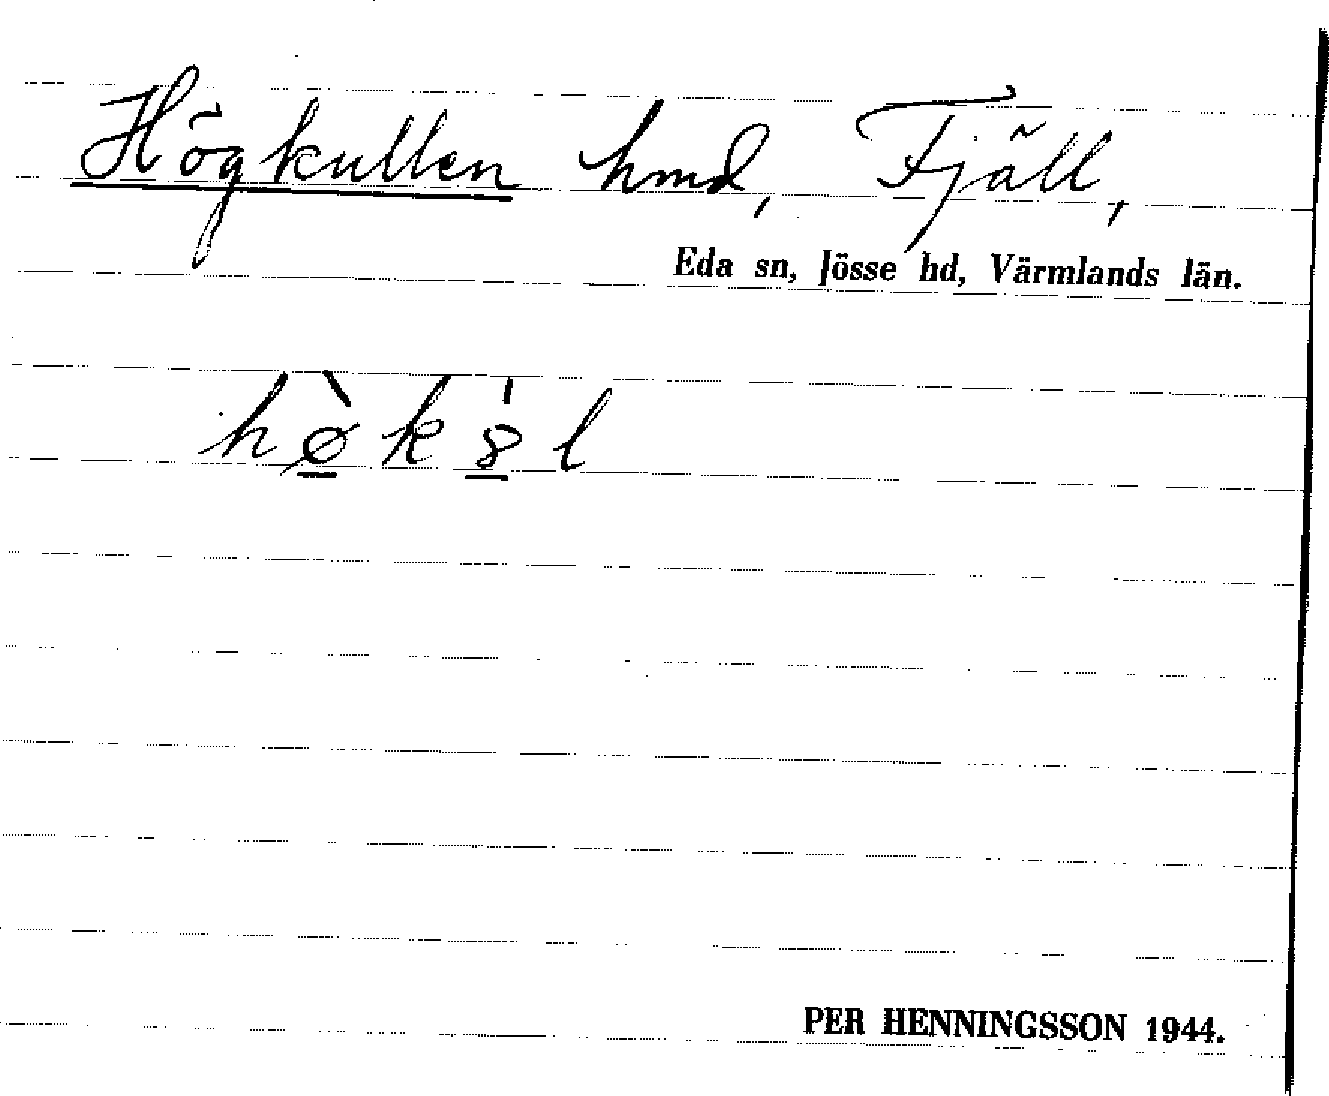 Högkullen hmd, Fjäll,
Eda sn, Jösse hd, Värmlands län.
hø̲̀k8̲̍l
PER HENNINGSSON 1944.